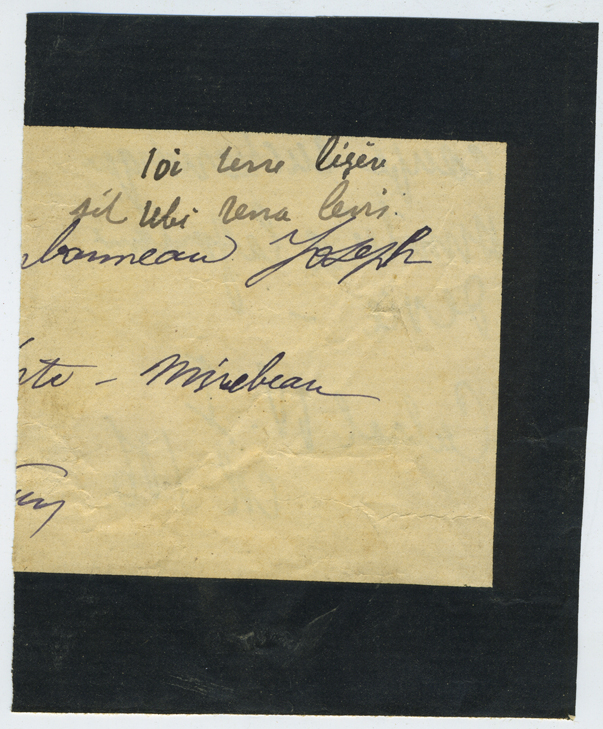 toi terre légère
sit tibi terra levis.
bonneau Joseph
te - Mirebeau